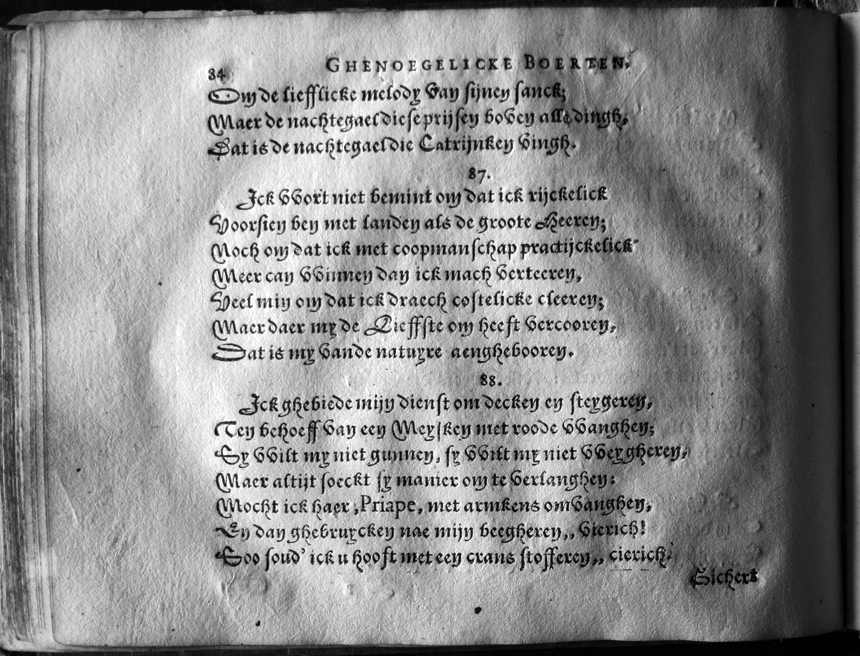 84 GHENOEGELICKE BOERTEN.
Om de liefflicke melody van sijnen sanck;
Maer de nachtegael die se prijsen boven alle dingh,
Dat is de nachtegael die Catrijnken vingh.
87.
Ick wort niet bemint om dat ick rijckelick
Voorsien ben met landen als de groote Heeren;
Noch om dat ick met coopmanschap practijckelick
Meer can winnen dan ick mach verteeren,
Veel min om dat ick draech costelicke cleeren;
Maer daer my de Lieffste om heeft vercooren,
Dat is my vande natuyre aenghebooren.
88.
Ick ghebiede mijn dienst om decken en steygeren,
Ten behoeff van een Meysken met roode wanghen;
Sy wilt my niet gunnen, sy wilt my niet weygheren,
Maer altijt soeckt sy manier om te verlanghen:
Mocht ick haer, Priape, met armkens omvanghen,
En dan ghebruycken nae mijn beegheren,, vierich!
Soo soud' ick u hooft met een crans stofferen,, cierich.
Sichert